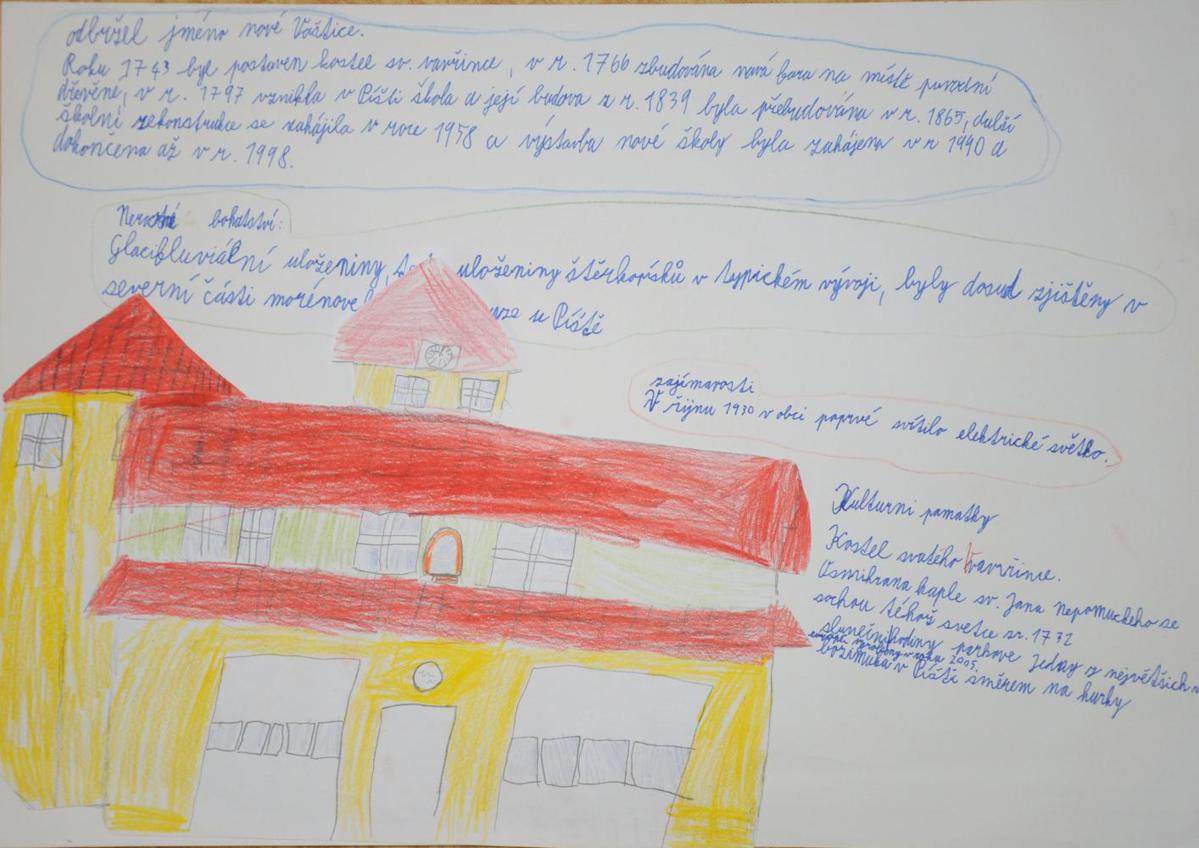 odbržel jméno nové Vaštice.
Roku 1743 byl postaven kostel sv. vavřince, v r. 1766 zbudována nová bara na místě puvodní
dřevěné, v r. 1797 vznikla v Píšti škola a její budova z r. 1839 byla přebudována v r. 1865, další
školní rekonstrukce se zahájila v roce 1958 a výstavba nové školy byla zahájena v r 1990 a
dokoncena až v r. 1998.
bohatství:
Glacifluviální uloženiny, uloženiny štěrkopísků v typickém vývoji, byly dosud zjištěny v
severní části morénove u Píště
zajímavosti
V říjnu 1930 v obci poprvé svítilo elektrické světko.
Kulturni pamatky
Kostel svatého Vavrřince.
Osmihrana kaple sv. Jana Nepomuckeho se
sochou téhož svetce sr. 1732
sluneční hodiny parkove Jedny z největších
v roku 2005.
v Píšti směrem na hurky